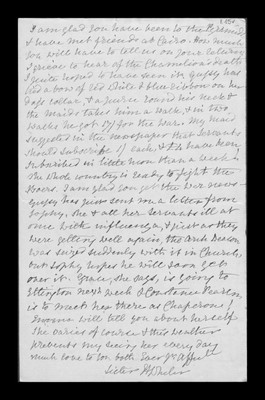 I am glad you have been to the Pyramids
& have met friends at Cairo. How much
you will have to tell us on your return
I grieve to hear of the Chameleon's death
I quite hoped to have seen it. Gipsy has
had a bow of red white & blue ribbon on her
dog's collar, & a purse round his neck &
the maids takes him a walk, & in two
walks he got 17/ for the war. My maid
suggested in the newspaper that servants
should subscribe 1/ each, & have been
subscribed in little more than a week
The whole country is ready to fight the
Boers. I am glad you get the war news
Gipsy has just sent me a letter from
Sophy, she & all her servants ill at
once with influenza, & just as they
were getting well again, the Arch Deacon
was seized suddenly with it in Church,
but Sophy hopes he will soon get
over it. Grace, she says, is going to
Ettington next week & Constance
is to meet her there as Chaperone!
Emma will tell you about herself
She varies of course & this weather
prevents my seeing her every day
much love to you both Ever yr Affect
Sister